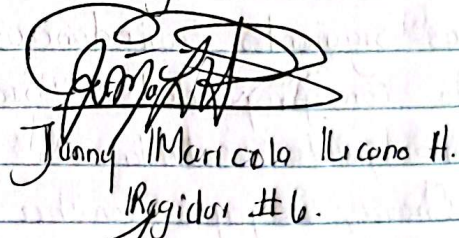 Junny Maricola Licono H.
Regidor #6.